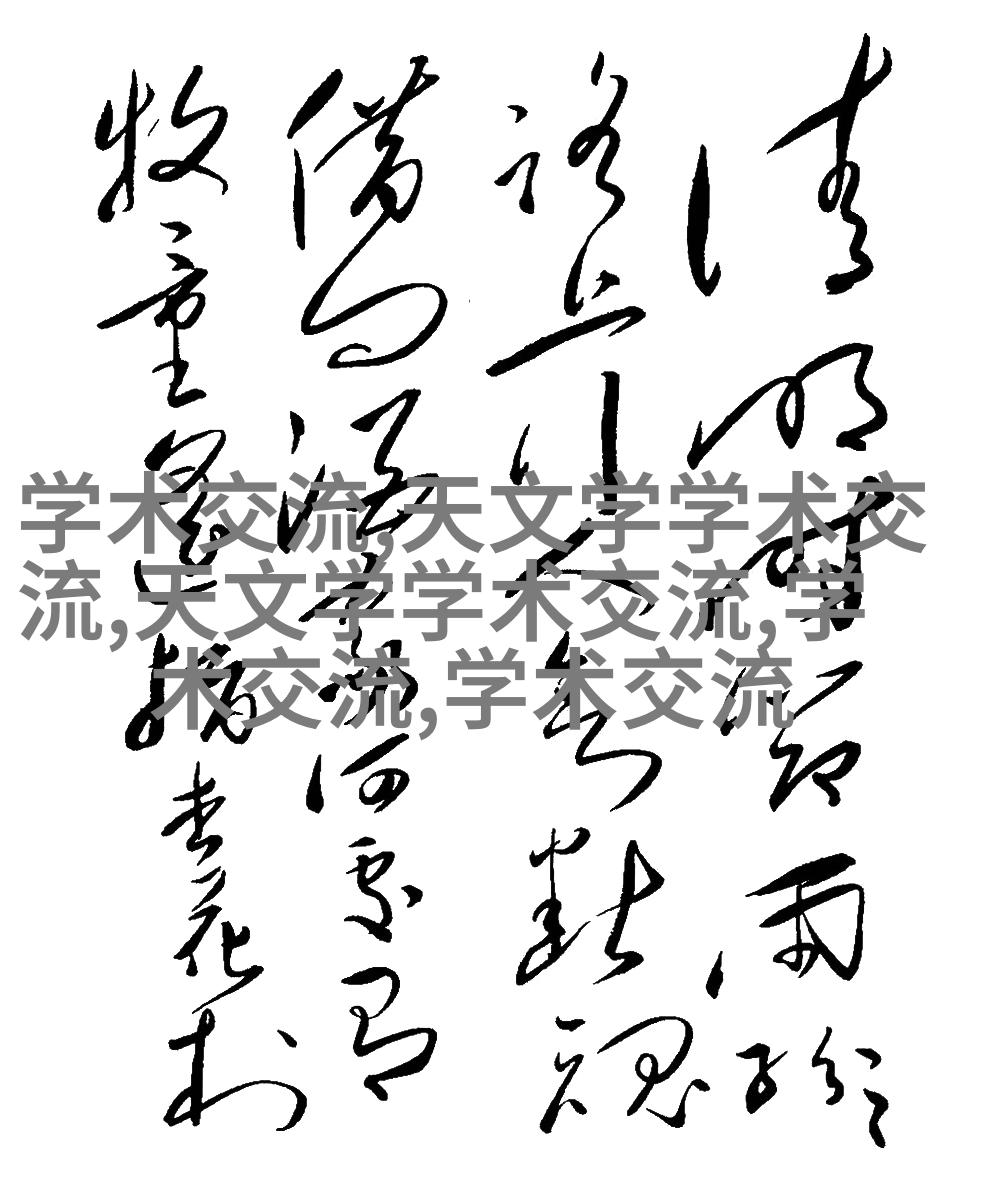 清明時節雨紛紛
路上行人欲斷魂
借问酒家何處有
牧童遥指杏花村
学术交流,天文学学术交
流,天文学学术交流,学
术交流,学术交流